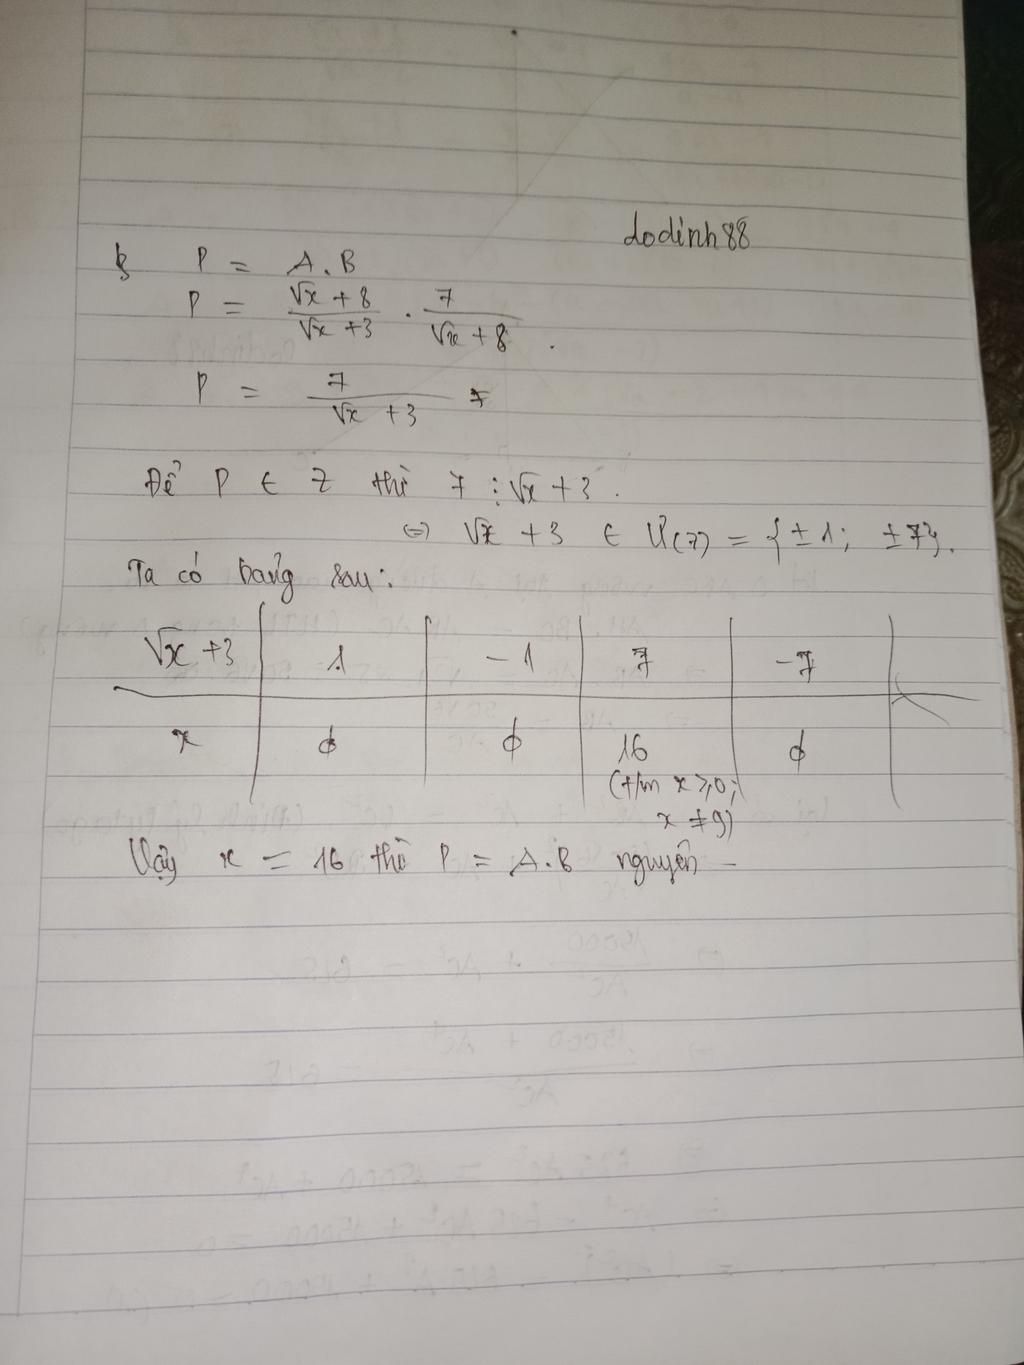 dodinh88
b, P = A.B
P = \frac{\sqrt{x} + 8}{\sqrt{x} + 3} . \frac{7}{\sqrt{x} + 8} .
P = \frac{7}{\sqrt{x} + 3}
Để P ∈ Z thì 7 ⋮ \sqrt{x} + 3.
⇔ \sqrt{x} + 3 ∈ Ư(7) = {±1; ±7}.
Ta có bảng sau:
\sqrt{x} + 3 | 1 | -1 | 7 | -7
x | ϕ | ϕ | 16 (t/m x ⩾ 0; x ≠ 9) | ϕ
Vậy x = 16 thì P = A.B nguyên